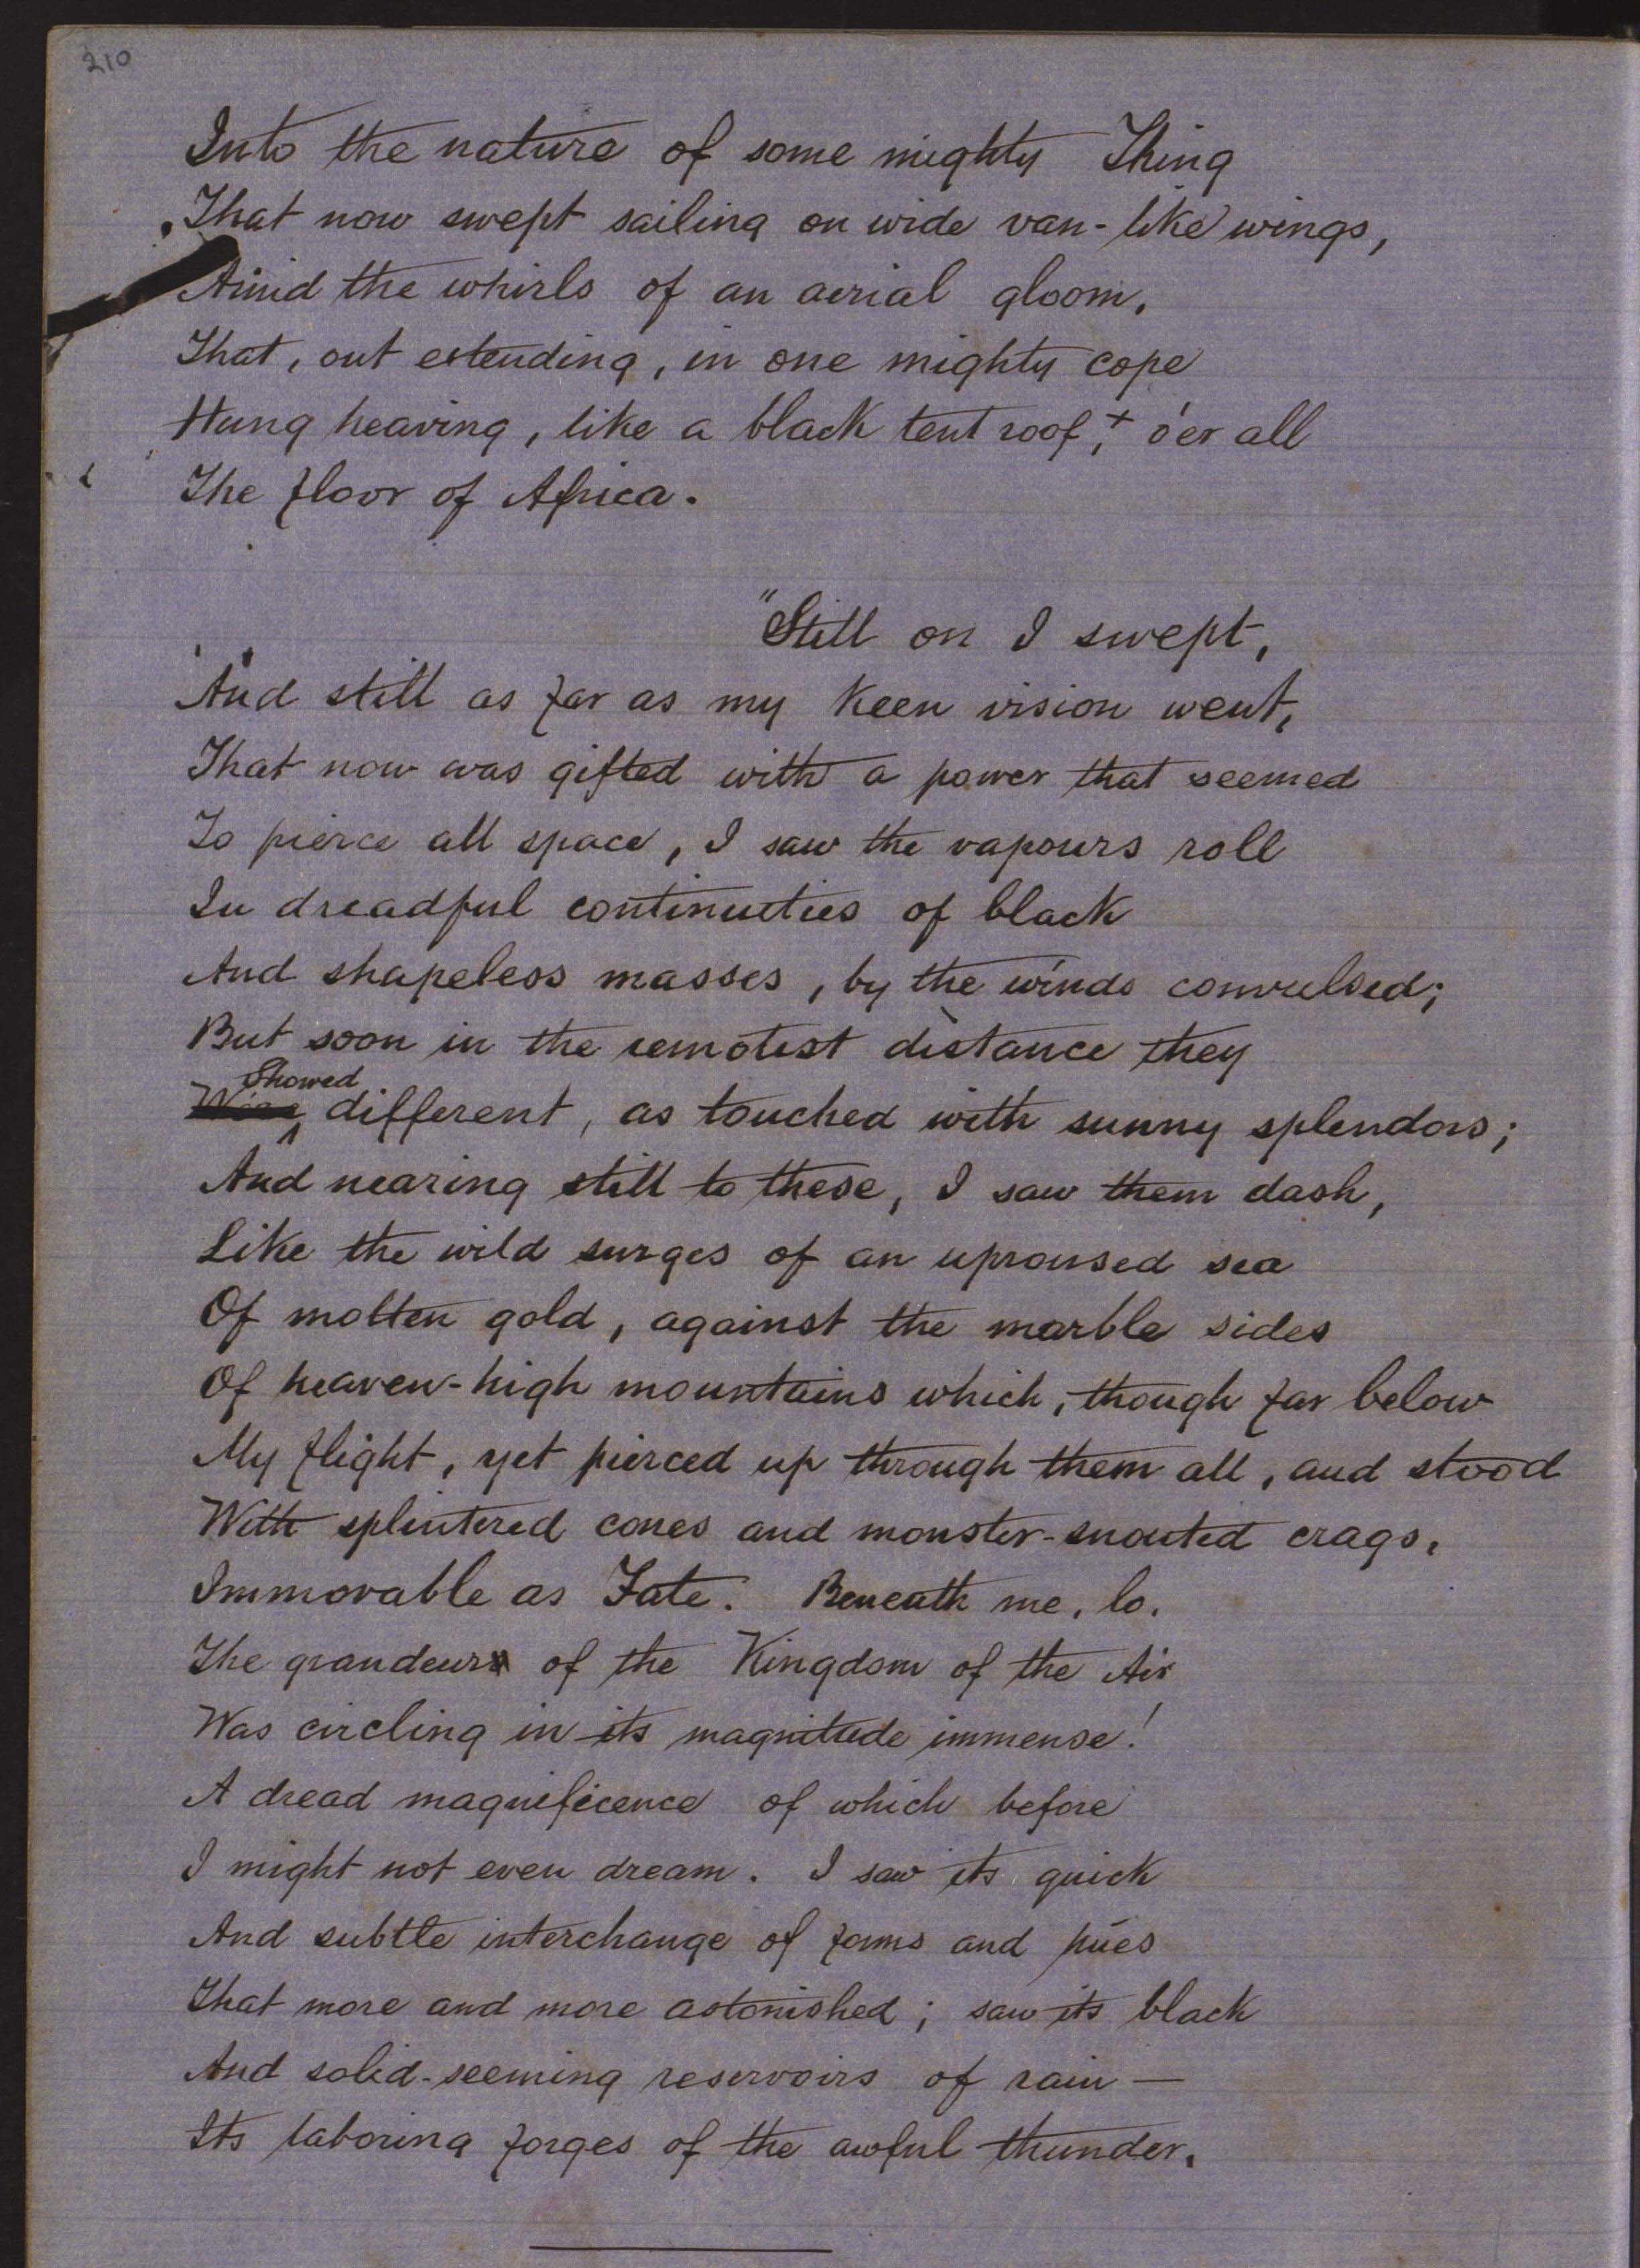 210
Into the nature of some mighty Thing
That now swept sailing on wide van-like wings,
Amid the whirls of an aerial gloom,
That, out extending, in one mighty cope
Hung heaving, like a black tent roof,+ o'er all
The floor of Africa.
"Still on I swept,
And still as far as my keen vision went,
That now was gifted with a power that seemed
To pierce all space, I saw the vapours roll
In dreadful continuities of black
And shapeless masses, by the winds convulsed;
But soon in the remotest distance they
Showed
different, as touched with sunny splendors;
And nearing still to these, I saw them dash,
Like the wild surges of an uproused sea
Of molten gold, against the marble sides
Of heaven-high mountains which, though far below
My flight, yet pierced up through them all, and stood
With splintered cones and monster-snouted crags,
Immovable as Fate. Beneath me, lo,
The grandeur of the Kingdom of the Air
Was circling in its magnitude immense!
A dread magnificence of which before
I might not even dream. I saw its quick
And subtle interchange of forms and
That more and more astonished; saw its black
And solid-seeming reservoirs of rain —
Its laboring forges of the awful thunder,